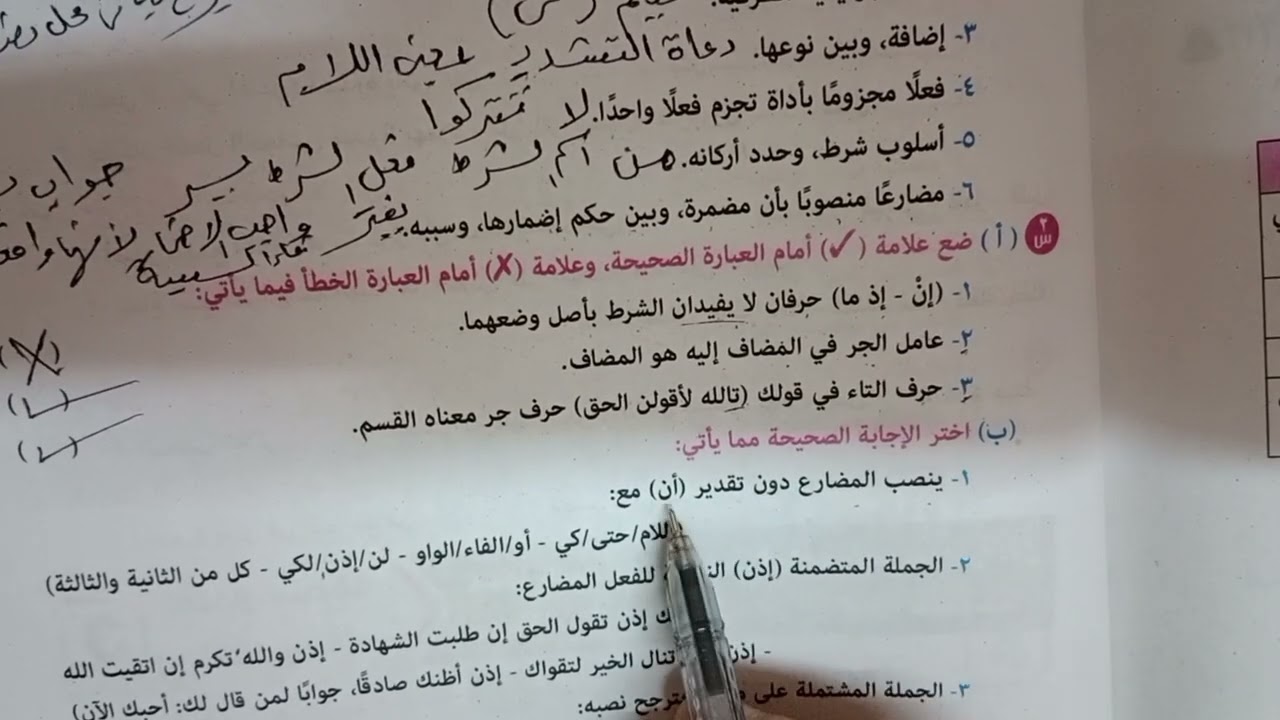 ٣- إضافة، وبين نوعها. دعاة التشدد بمعنى اللام
٤- فعلًا مجزومًا بأداة تجزم فعلًا واحدًا. لا تتركوا
٥- أسلوب شرط، وحدد أركانه. من اسم الشرط فعل الشرط جواب
٦- مضارعًا منصوبًا بأن مضمرة، وبين حكم إضمارها، وسببه.
س٢ (أ) ضع علامة (✓) أمام العبارة الصحيحة، وعلامة (✗) أمام العبارة الخطأ فيما يأتي:
١- (إنْ - إذ ما) حرفان لا يفيدان الشرط بأصل وضعهما. (X)
٢- عامل الجر في المضاف إليه هو المضاف.
٣- حرف التاء في قولك (تالله لأقولن الحق) حرف جر معناه القسم.
(ب) اختر الإجابة الصحيحة مما يأتي:
١- ينصب المضارع دون تقدير (أن) مع:
اللام/حتى/كي - أو/الفاء/الواو - لن/إذن/لكي - كل من الثانية والثالثة)
٢- الجملة المتضمنة (إذن) للفعل المضارع:
إذن تقول الحق إن طلبت الشهادة - إذن والله تكرم إن اتقيت الله
- إذن تنال الخير لتقواك - إذن أظنك صادقًا، جوابًا لمن قال لك: أحبك الآن)
٣- الجملة المشتملة على يترجح نصبه: